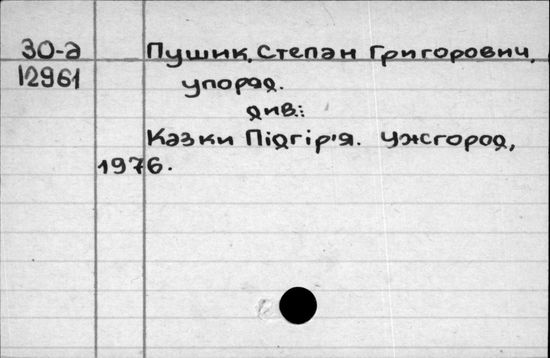 30-а
12961
Пушик, Степан Григорович,
упоряд.
див.:
Казки Підгір'я. Ужгород,
1976.